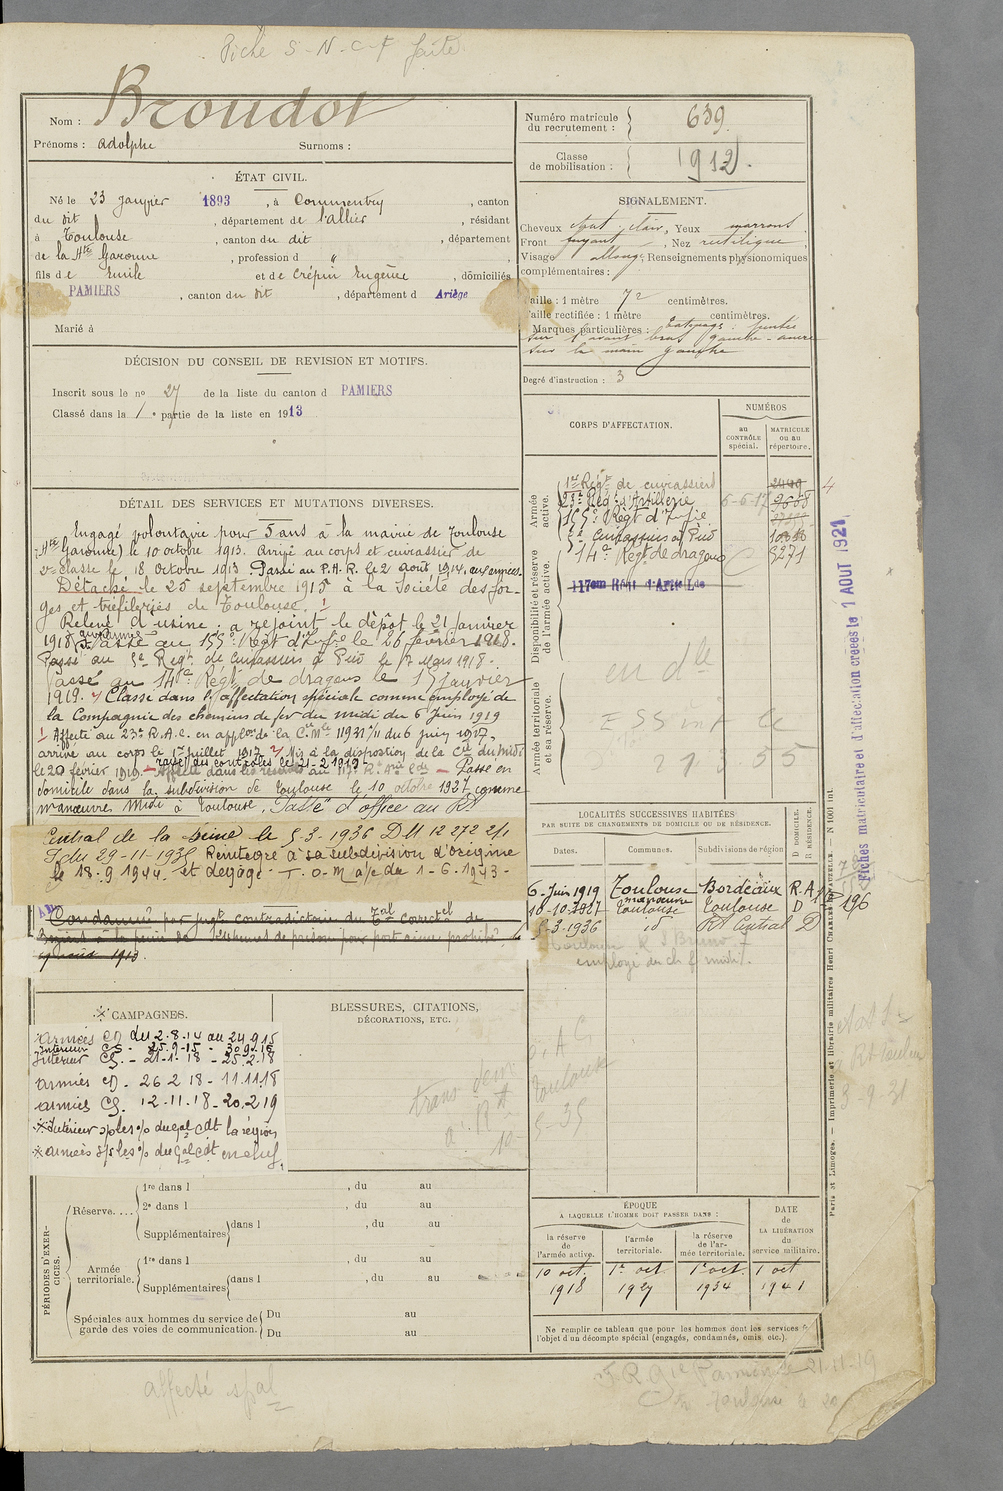 Fiche S-N-C-F faite
Nom : Broudot
Prénoms : adolphe Surnoms :
Numéro matricule du recrutement : 639
Classe de mobilisation : 1912.
ÉTAT CIVIL.
Né le 23 janvier 1893, à Commentry, canton
du dit, département de l'allier, résidant
à Toulouse, canton du dit, département
de la Hte Garonne, profession d "
fils de Emile et de Crépin Eugénie, domiciliés
PAMIERS, canton du dit, département d Ariège
Marié à
SIGNALEMENT.
Cheveux chat clair, Yeux marrons
Front fuyant, Nez rectiligne
Visage allongé, Renseignements physionomiques
complémentaires :
Taille : 1 mètre 72 centimètres.
Taille rectifiée : 1 mètre centimètres.
Marques particulières : Tatouage :
sur l'avant bras gauche - ancre
sur la main gauche
Degré d'instruction : 3
DÉCISION DU CONSEIL DE REVISION ET MOTIFS.
Inscrit sous le no 27 de la liste du canton d PAMIERS
Classé dans la 1e partie de la liste en 1913
DÉTAIL DES SERVICES ET MUTATIONS DIVERSES.
Engagé volontaire pour 5 ans à la mairie de Toulouse
(Hte Garonne) le 10 octobre 1913. Arrivé au corps et cuirassier de
2e classe le 18 Octobre 1913. Passé au P.H.R. le 2 août 1914, aux armées.
Détaché le 25 septembre 1915 à la Société des for-
ges et tréfileries de Toulouse. !
Relevé d'usine : a rejoint le dépôt le 21 janvier
1918. Passé au 155e Régt d'Infie le 26 février 1918.
Passé au 5e Régt de Cuirassiers à Pied le 17 Mars 1918.
Passé au 14e Régt de dragons le 15 janvier
1919. Classé dans l'affectation spéciale comme employé de
la Compagnie des chemins de fer du midi du 6 Juin 1919
! Affecté au 23e R.A.C. en applon de la C. Mle 11931/11 du 6 juin 1917,
arrivé au corps le 1er juillet 1917. Mis à la disposition de la Cie du Midi
rayé des contrôles le 21-2-1919
le 20 février 1919. — Affecté dans les réserves au 117e R. Arie Lde — Passé en
domicile dans la subdivision de Toulouse le 10 octobre 1927 comme
manœuvre Midi à Toulouse. Passé d'office au Rt
Central de la Seine le 5-3-1936 DM 12 272 2/1
du 29-11-1935 Réintégré à sa subdivision d'origine
le 18-9 1944. et dégagé T.O.M a/c du 1-6-1943-
Condamné par jugt contradictoire du Tal correctel de
Béziers à la peine de de prison pour port d'arme prohibé
CORPS D'AFFECTATION.
NUMÉROS
au CONTRÔLE spécial.
MATRICULE ou au répertoire.
Armée active.
1er Régt de cuirassiers
23e Régt d'Artillerie 6-6-17
155e Régt d'Infie
5e Cuirassiers à Pied
Disponibilité et réserve de l'armée active.
14e Régt de dragons 3271
117eme Régt d'Artie Lde
Armée territoriale et sa réserve.
en dle
21355
LOCALITÉS SUCCESSIVES HABITÉES
PAR SUITE DE CHANGEMENTS DE DOMICILE OU DE RÉSIDENCE.
Dates. Communes. Subdivisions de région D DOMICILE. R RÉSIDENCE.
6-Juin 1919 Toulouse Bordeaux R.A
manœuvre
10-10-1927 Toulouse Toulouse D 196
5-3-1936 id Rt Central D
employé du ch f midi.
CAMPAGNES.
Armées CD du 2.8.14 au 24 9 15
Intérieur CS. - 25.9-15 -
Intérieur CS. - 21-1-18 - 25-2-18
Armées CD. - 26 2 18 - 11.11.18
Armées CS. 12-11-18 - 20.2.19
※ Intérieur s/ples % du gal cdt la région
※ armées s/s les % du gal cdt en chef.
BLESSURES, CITATIONS,
DÉCORATIONS, ETC.
Toulouse
PÉRIODES D'EXERCICES.
Réserve....
1re dans l , du au
2e dans l , du au
Supplémentaires dans l , du au
Armée territoriale.
1re dans l , du au
Supplémentaires dans l , du au
Spéciales aux hommes du service de garde des voies de communication.
Du au
Du au
ÉPOQUE
A LAQUELLE L'HOMME DOIT PASSER DANS :
la réserve de l'armée active.
l'armée territoriale.
la réserve de l'armée territoriale.
DATE de LA LIBÉRATION du service militaire.
10 oct. 1918
1er oct 1927
1er oct. 1934
1 oct 1941
Ne remplir ce tableau que pour les hommes dont les services
l'objet d'un décompte spécial (engagés, condamnés, omis, etc.).
Fiches matriculaire et d'affectation créées le 1 AOUT 1921
Paris et Limoges. — Imprimerie et librairie militaires Henri CHARLES-LAVAUZELLE. — N 1001 int.
3-9-31
affecté spal
21-11-19
Toulouse le 20